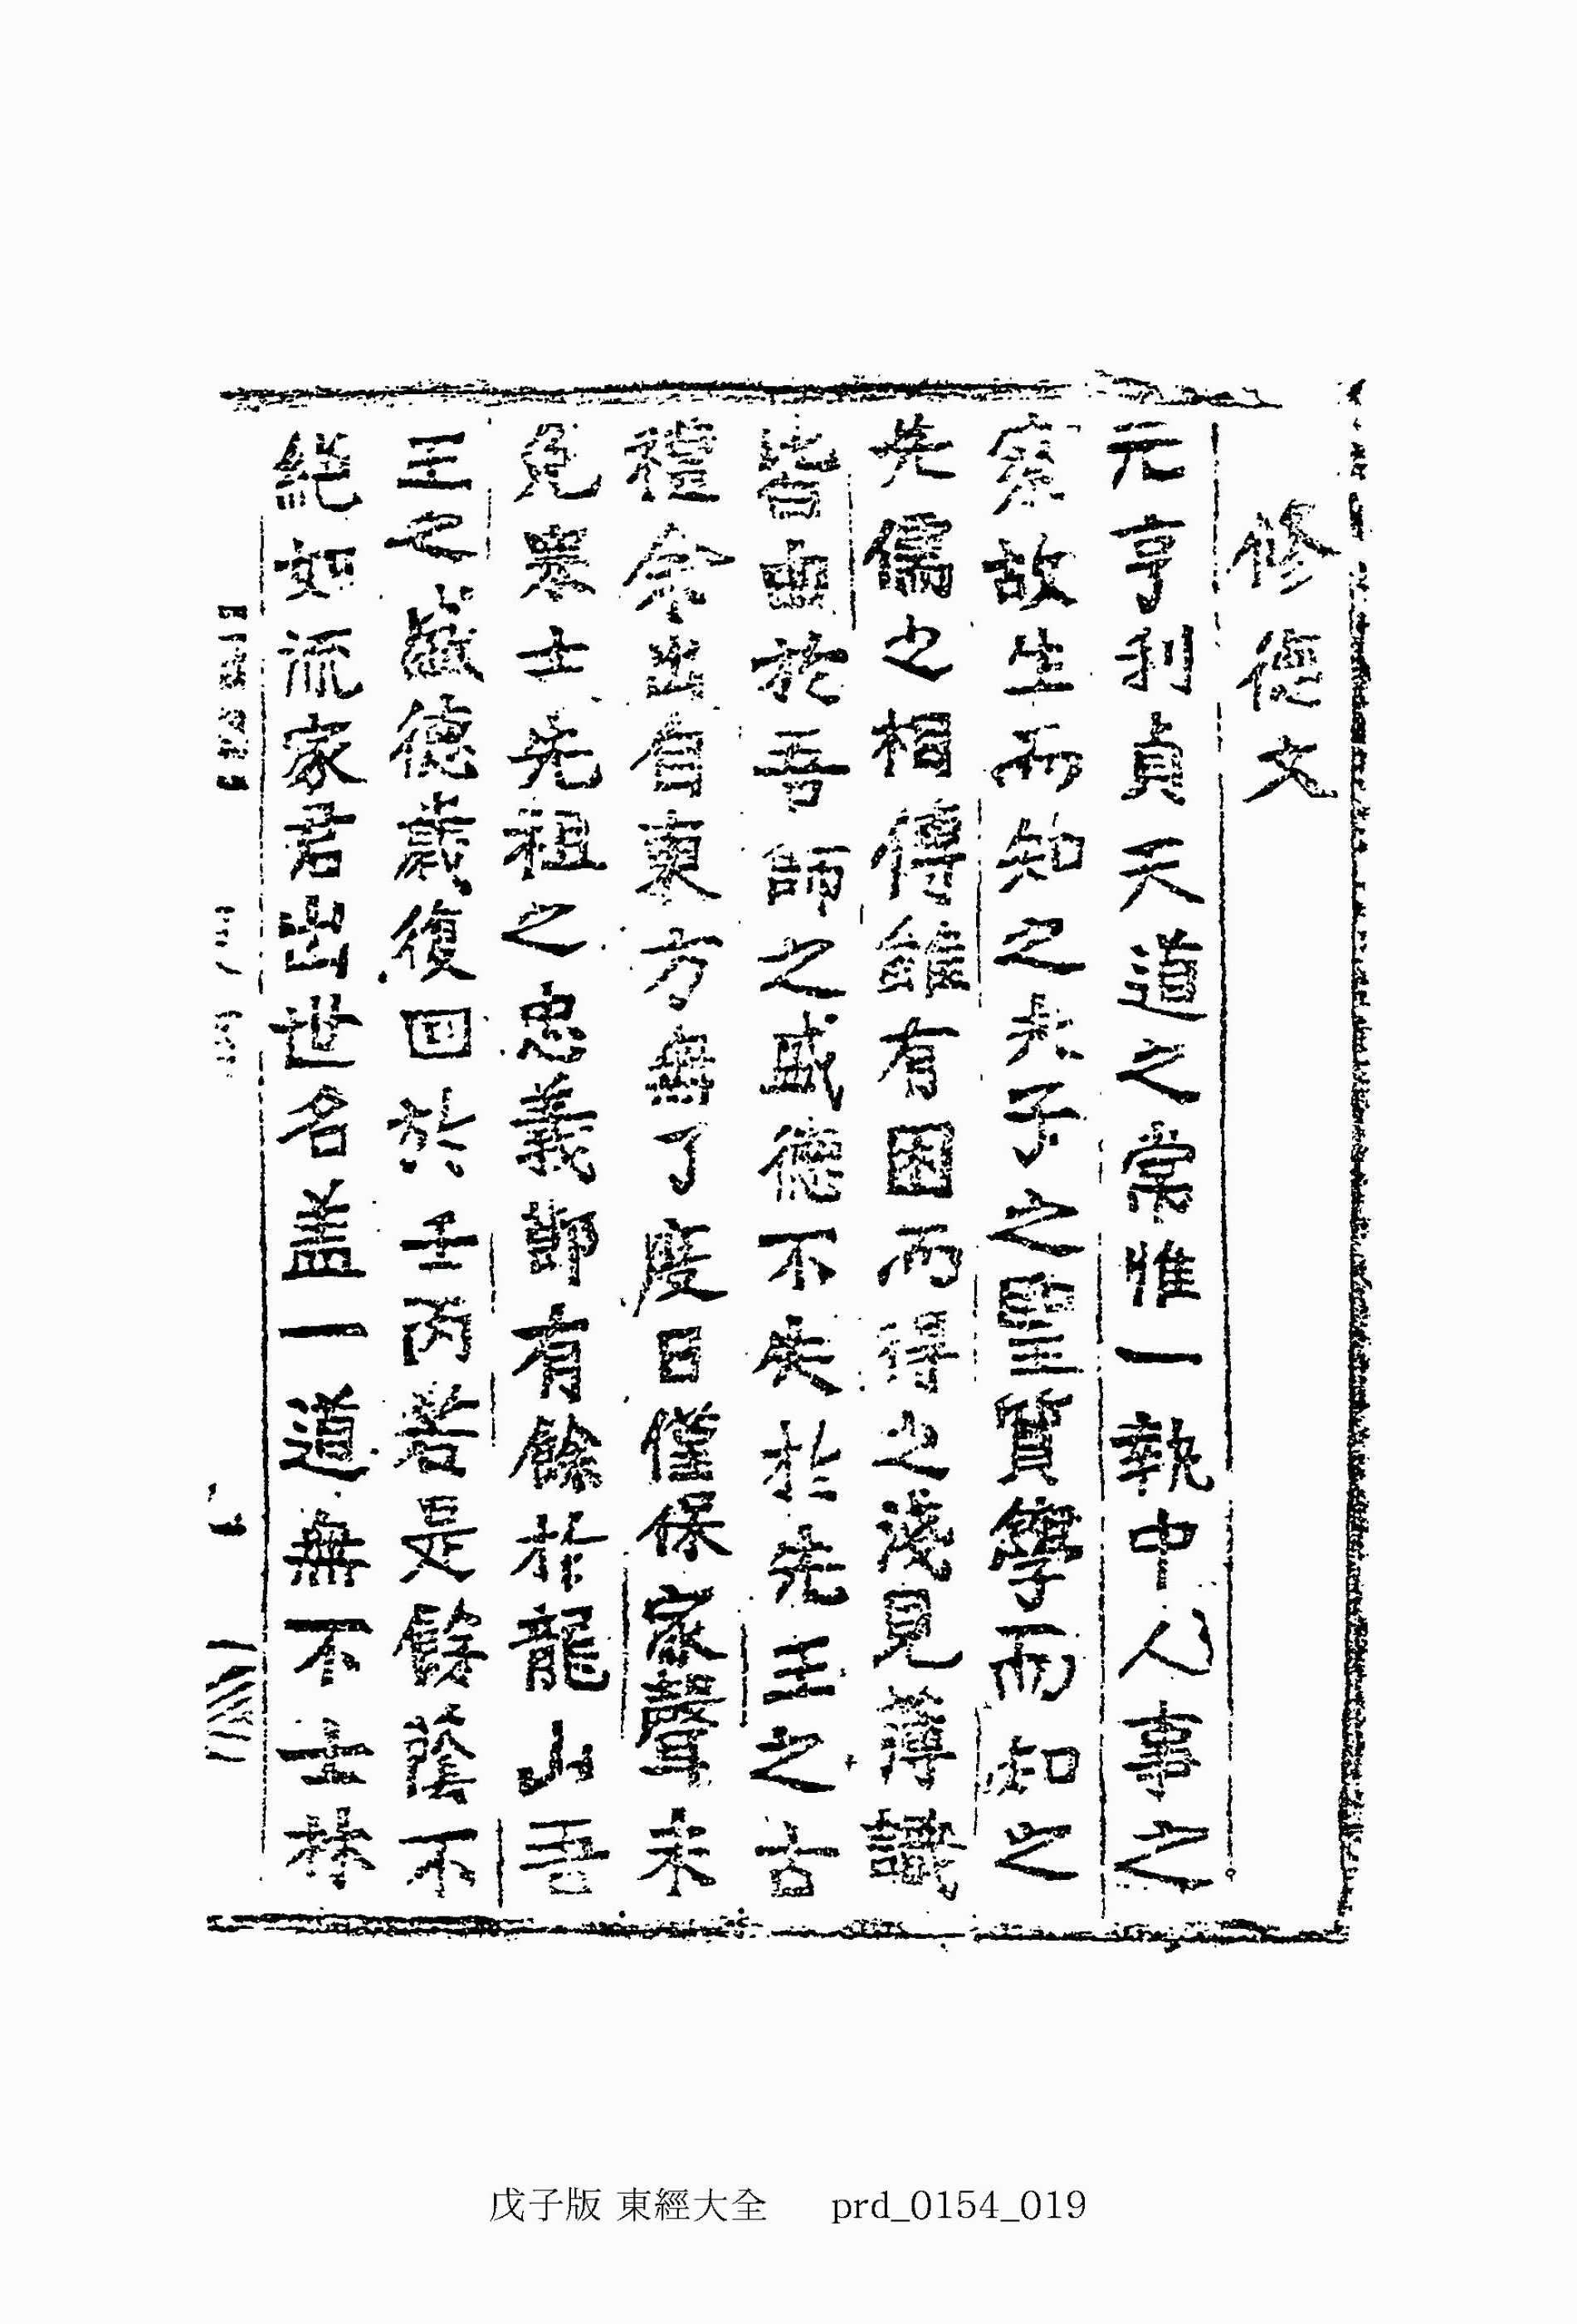 修德文
元亨利貞天道之常惟一執中人事之
察故生而知之夫子之聖質學而知之
先儒之相傳雖有困而得之淺見薄識
皆由於吾師之盛德不失於先王之古
禮余出自東方無了度日僅保家聲未
免寒士先祖之忠義節有餘於龍山吾
王之盛德歲復回於壬丙若是餘蔭不
絕如流家君出世名盖一道無不士林
戊子版 東經大全 prd_0154_019